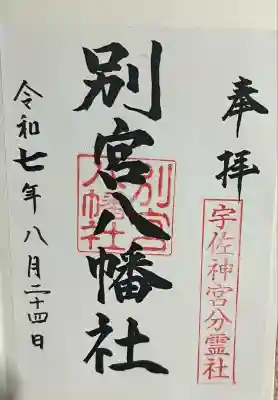 奉拝
宇佐神宮分霊社
別宮八幡社
別宮
八幡社
令和七年八月二十四日